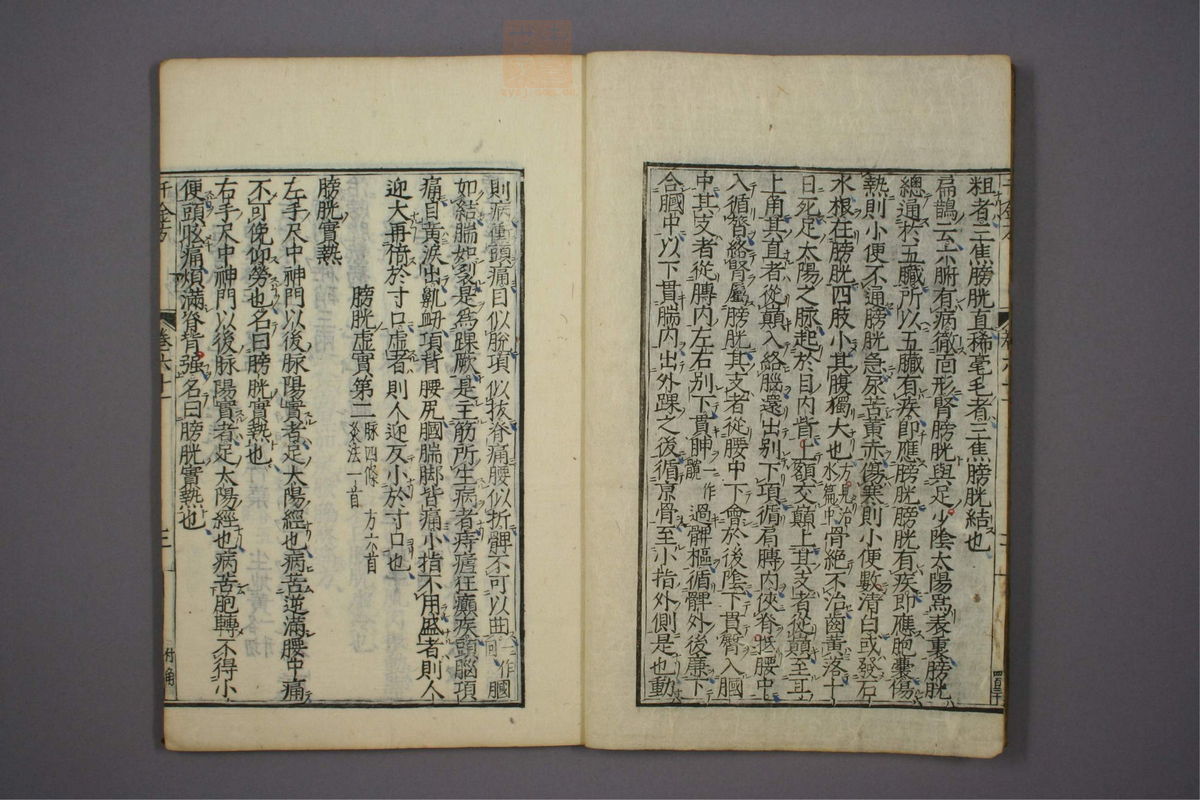 粗者三焦膀胱直稀毫毛者三焦膀胱結也
扁鵲云六腑有病徹面形腎膀胱與足少陰太陽爲表裏膀胱
總通於五臟所以五臟有疾即應膀胱膀胱有疾即應胞囊傷
熱則小便不通膀胱急尿苦黃赤傷寒則小便數清白或發石
水根在膀胱四肢小其腹獨大也方見治水篇中骨絕不治齒黃落十
日死足太陽之脉起於目内眥上額交顛上其支者從顛至耳
上角其直者從顛入絡腦還出別下項循肩膊内俠脊抵腰中
入循膂絡腎屬膀胱其支者從腰中下會於後陰下貫臀入膕
中其支者從膊内左右別下貫胂一作髖過髀樞循髀外後廉下
合膕中以下貫腨内出外踝之後循京骨至小指外側是也動
則病衝頭痛目似脫項似拔脊痛腰似折髀不可以曲一作回膕
如結腨如裂是爲踝厥是主筋所生病者痔瘧狂癲疾頭腦項
痛目黃淚出鼽衄項背腰尻膕腨脚皆痛小指不用盛者則人
迎大再倍於寸口虛者則人迎反小於寸口也
膀胱虛實第二脉四條 方六首 灸法一首
膀胱實熱
左手尺中神門以後脉陽實者足太陽經也病苦逆滿腰中痛
不可俛仰勞也名曰膀胱實熱也
右手尺中神門以後脉陽實者足太陽經也病苦胞轉不得小
便頭眩痛煩滿脊背强名曰膀胱實熱也